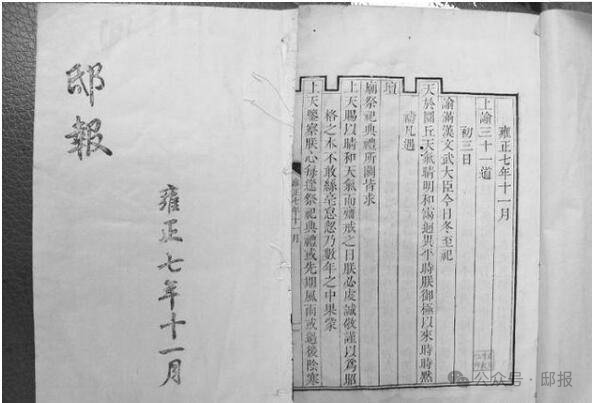 邸報
雍正七年十一月
雍正七年十一月
上諭三十一道
初三日
諭滿漢文武大臣今日冬至祀
天於圜丘天氣晴明和煦迥異平時朕御極以來時時默
禱凡遇
壇
廟祭祀典禮所關皆求
上天賜以晴和天氣而齋戒之日朕必虔誠敬謹以爲昭
格之本不敢絲毫怠忽乃數年之中果蒙
上天鑒察朕心每逢祭祀典禮或先期風雨或過後陰寒
正七年十一月
公众号·邸报